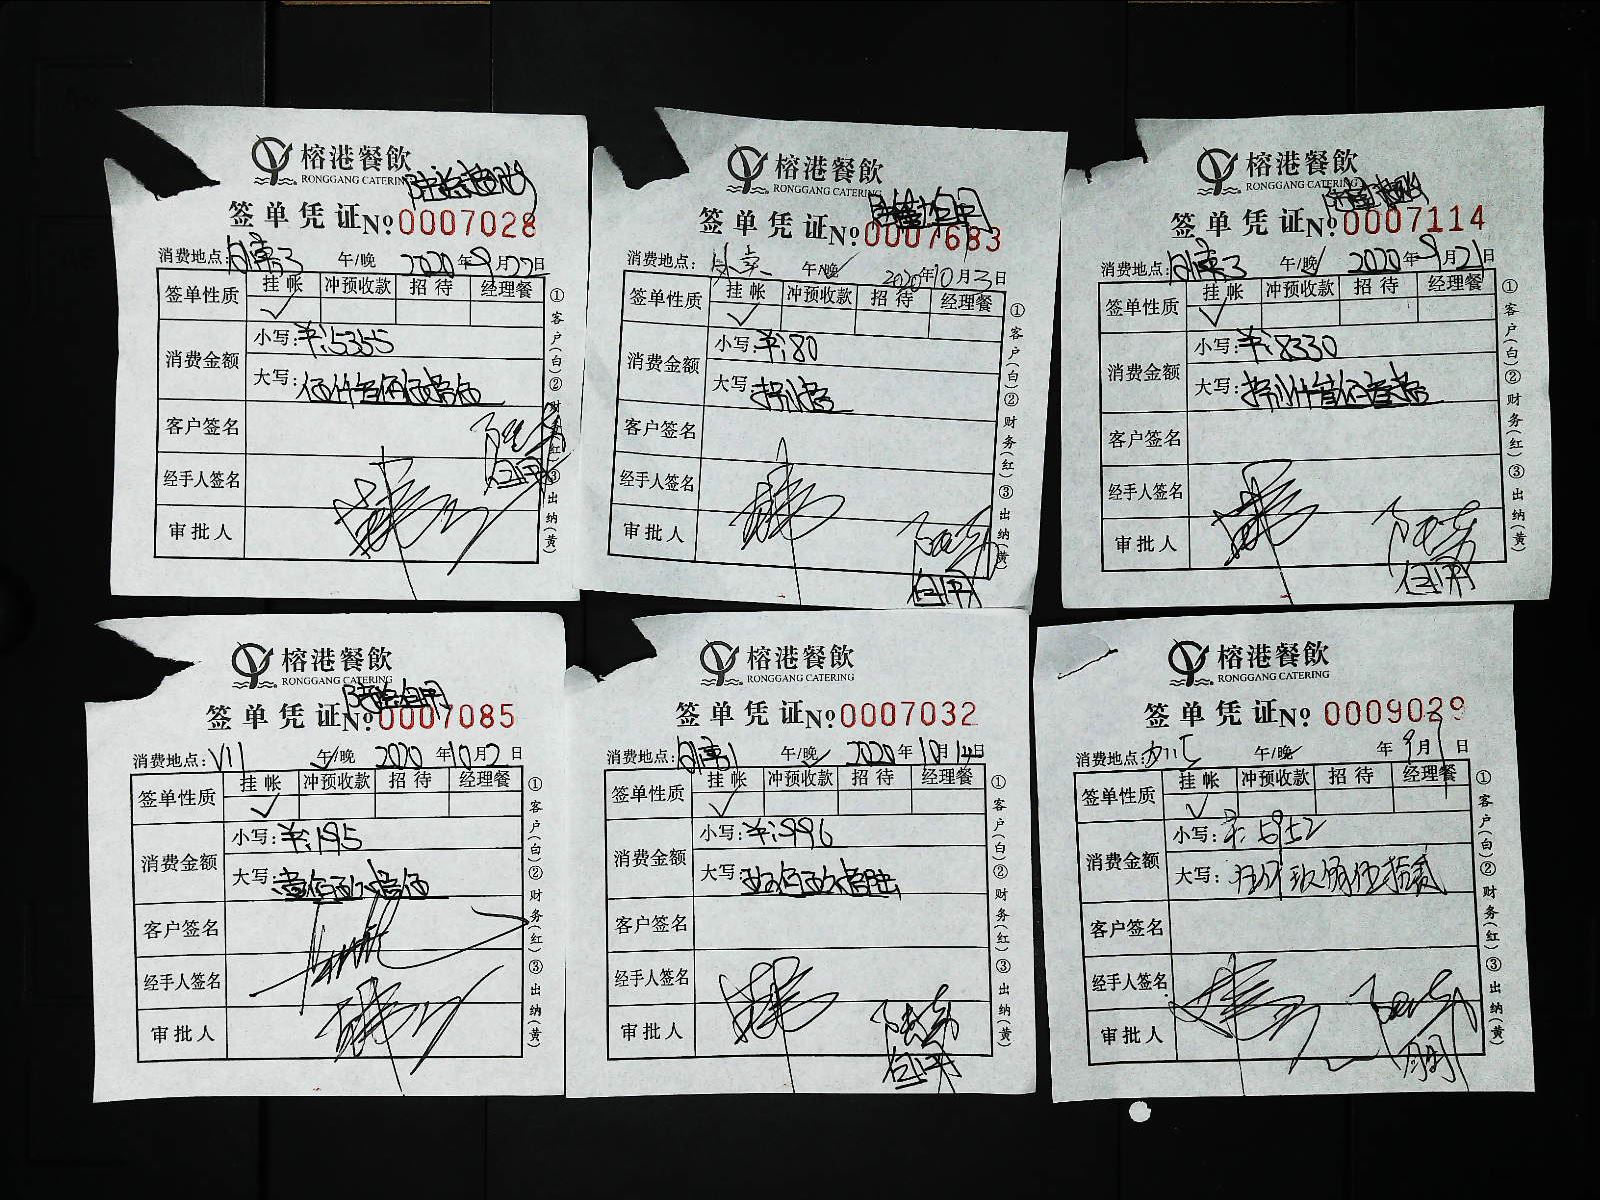 榕港餐飲
RONGGANG CATERING
签单凭证№0007028
消费地点: 午/晚 2020年9月22日
签单性质 挂帐 冲预收款 招待 经理餐
消费金额 小写:¥:5355
大写:伍仟叁佰伍拾伍
客户签名
经手人签名
审批人
①客户(白)②财务(红)③出纳(黄)
榕港餐飲
RONGGANG CATERING
签单凭证№0007683
消费地点: 午/晚 2020年10月3日
签单性质 挂帐 冲预收款 招待 经理餐
消费金额 小写:¥:80
大写:捌拾
客户签名
经手人签名
审批人
①客户(白)②财务(红)③出纳(黄)
榕港餐飲
RONGGANG CATERING
签单凭证№0007114
消费地点: 午/晚 2020年9月21日
签单性质 挂帐 冲预收款 招待 经理餐
消费金额 小写:¥:8330
大写:捌仟叁佰叁拾
客户签名
经手人签名
审批人
①客户(白)②财务(红)③出纳(黄)
榕港餐飲
RONGGANG CATERING
签单凭证№0007085
消费地点:V11 午/晚 2020年10月2日
签单性质 挂帐 冲预收款 招待 经理餐
消费金额 小写:¥:195
大写:壹佰玖拾伍
客户签名
经手人签名
审批人
①客户(白)②财务(红)③出纳(黄)
榕港餐飲
RONGGANG CATERING
签单凭证№0007032
消费地点: 午/晚 2020年10月14日
签单性质 挂帐 冲预收款 招待 经理餐
消费金额 小写:¥:996
大写:玖佰玖拾陆
客户签名
经手人签名
审批人
①客户(白)②财务(红)③出纳(黄)
榕港餐飲
RONGGANG CATERING
签单凭证№0009029
消费地点: 午/晚 年9月1日
签单性质 挂帐 冲预收款 招待 经理餐
消费金额 小写:¥:5952
大写:伍仟玖佰伍拾贰
客户签名
经手人签名
审批人
①客户(白)②财务(红)③出纳(黄)